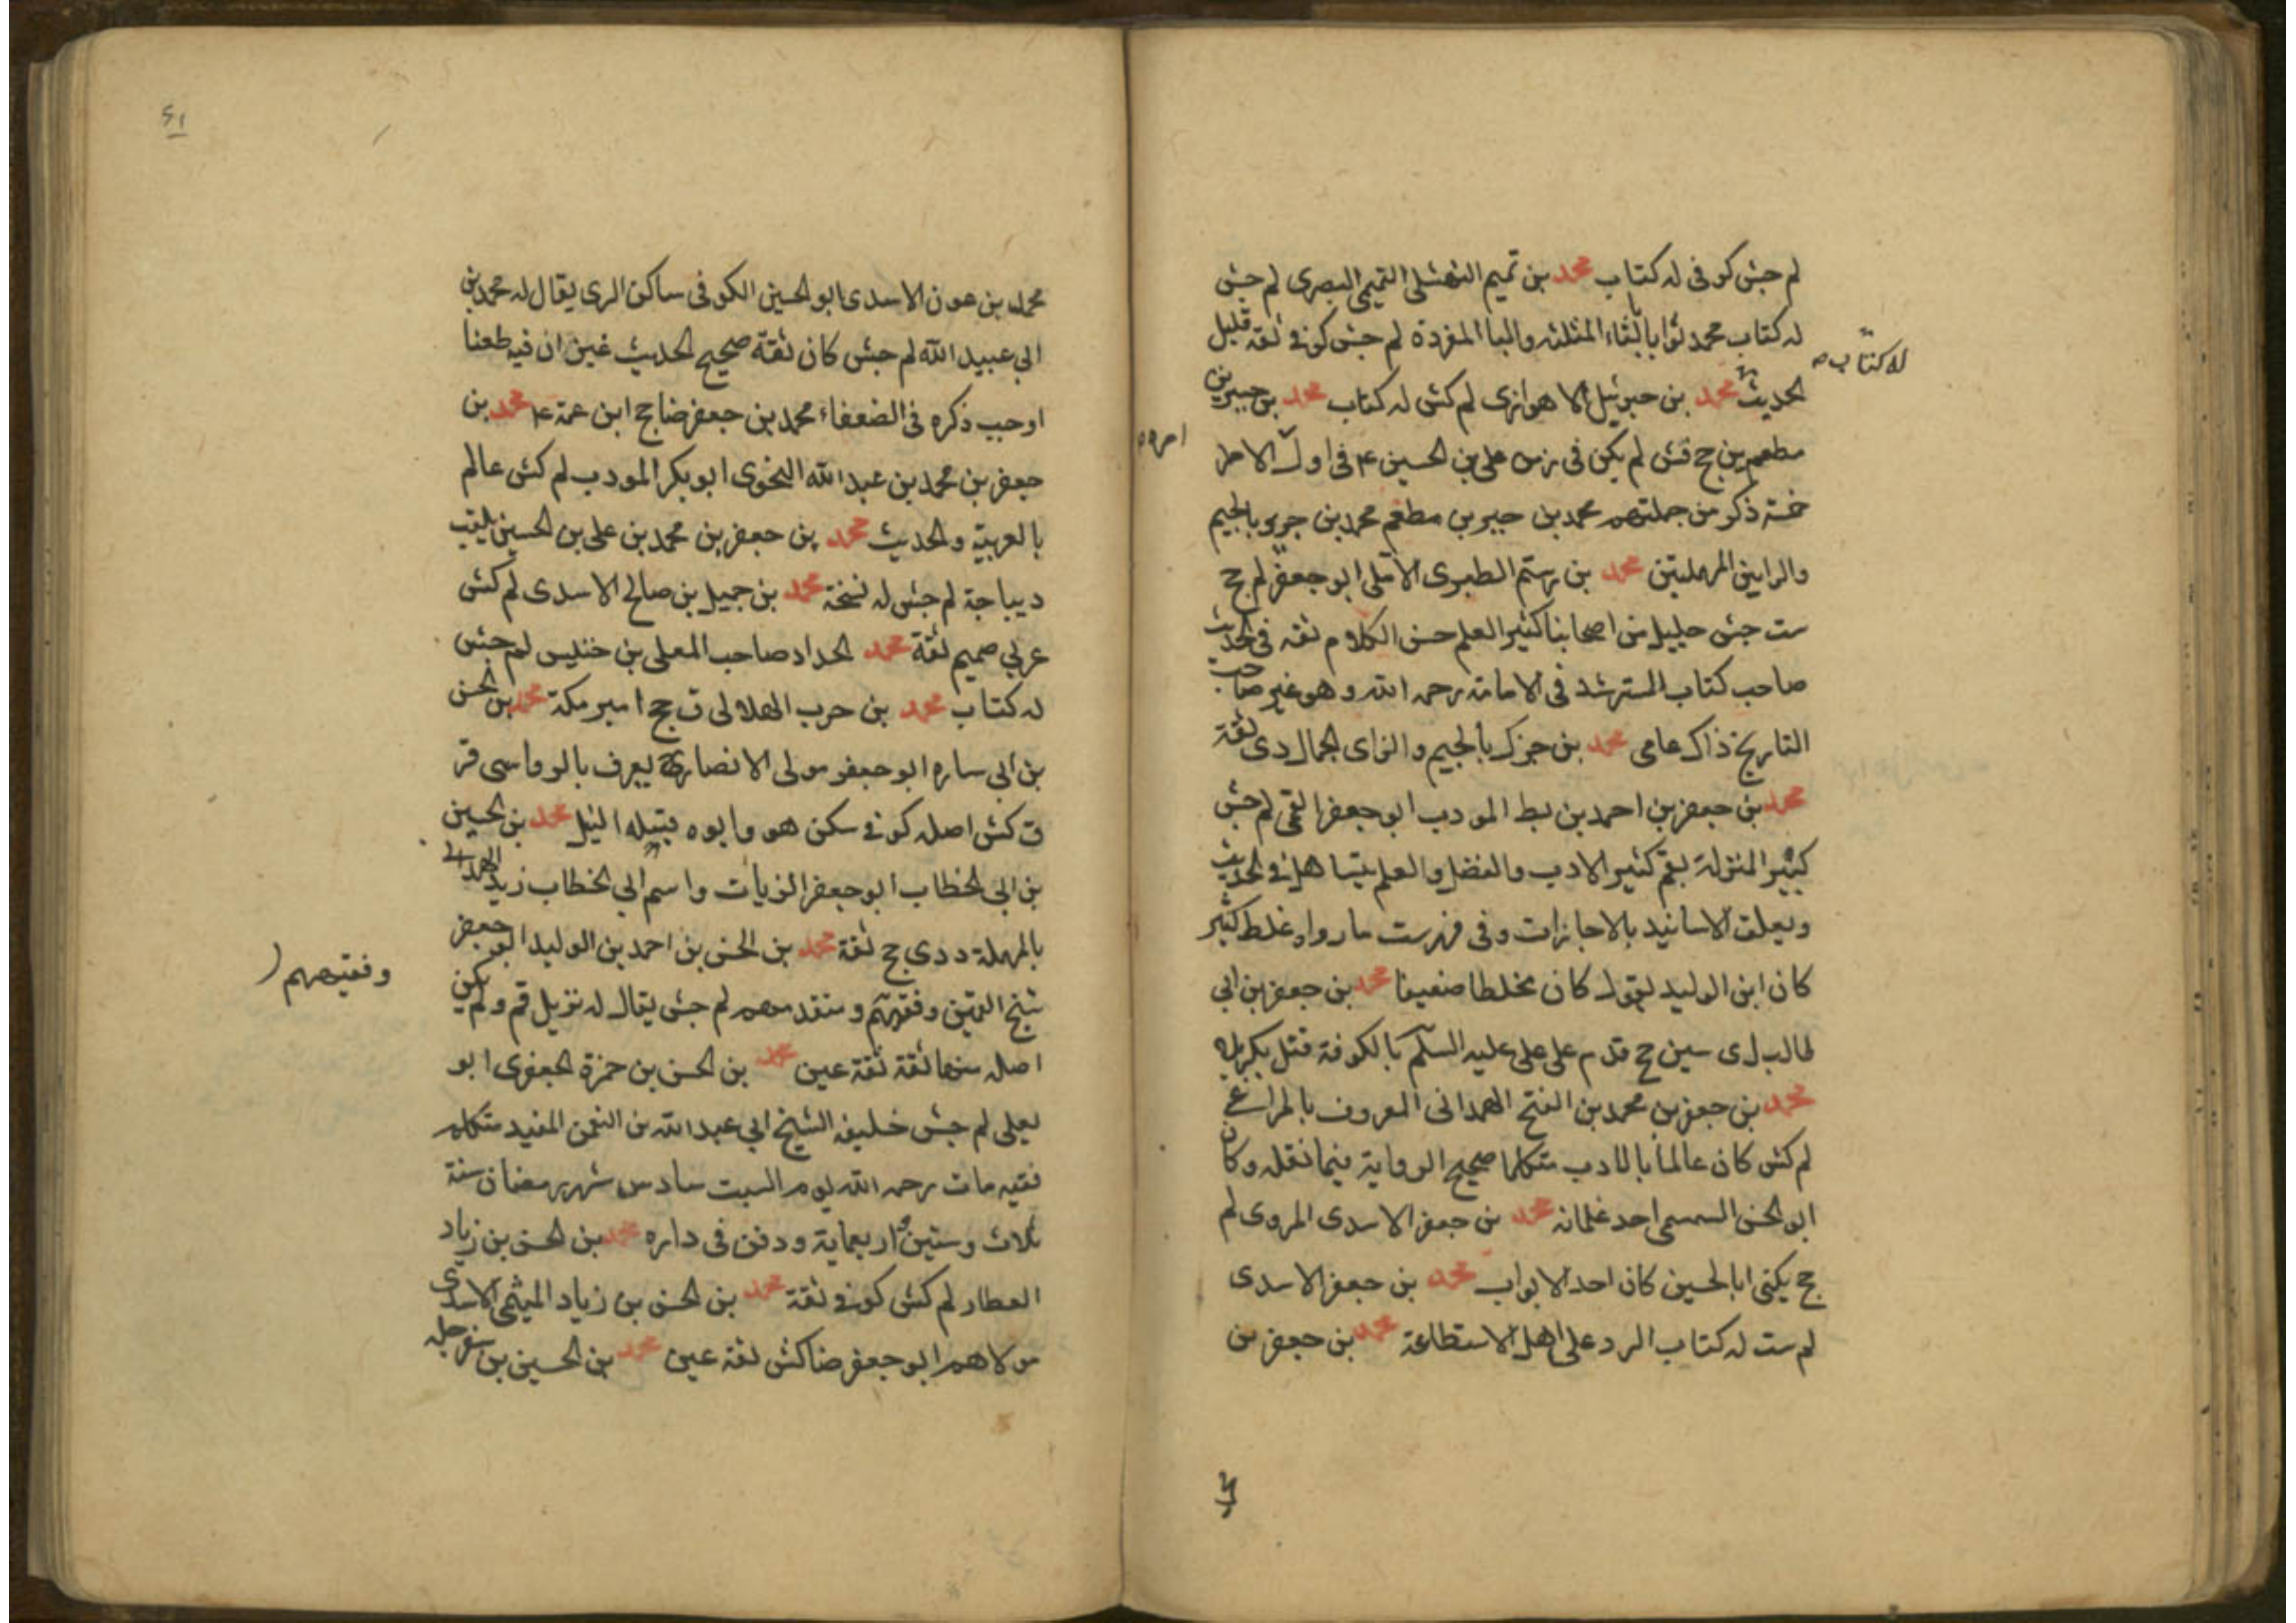 لم جش كوفى له كتاب محمد بن تميم النهشلى التميمى البصرى لم جش
له كتاب محمد ثوابا بالثاء المثلثه والبا المفردة لم جش كوفى ثقه قليل
له كتاب صه
الحديث محمد بن جبرئيل الاهوازى لم كش له كتاب محمد بن جبير بن
مطعم ين جخ قش لم يكن فى زمن على بن الحسين ع فى اول الامر
امره
خمسة ذكر من جملتهم محمد بن جبير بن مطعم محمد بن جرير بالجيم
والرايين المهملتين محمد بن رستم الطبرى الآملى ابو جعفر لم جخ
ست جش جليل من اصحابنا كثير العلم حسن الكلام ثقه فى الحديث
صاحب كتاب المسترشد فى الامامة رحمه الله وهو غير صاحب
التاريخ ذاك عامى محمد بن جزك بالجيم والزاى الجمال دى ثقة
محمد بن جعفر بن احمد بن بط المودب ابو جعفر القمى لم جش
كبير المنزلة بقم كثير الادب والفضل والعلم يتساهل فى الحديث
ويعلق الاسانيد بالاجازات وفى فهرست ما رواه غلط كثير
كان ابن الوليد يقول كان مخلطا ضعيفا محمد بن جعفر بن ابى
طالب ل ى سين جخ قدم على على عليه السلم بالكوفة قتل بكربلا
محمد بن جعفر بن محمد بن الفتح الهمدانى المعروف بالمراغى
لم كش كان عالما بالادب متكلما صحيح الرواية فيما نقله وكان
ابو الحسن السمسمى احد غلمانه محمد بن جعفر الاسدى المروى لم
جخ يكنى ابا الحسين كان احد الابواب محمد بن جعفر الاسدى
لم ست له كتاب الرد على اهل الاستطاعة محمد بن جعفر بن
٢١
محمد بن عون الاسدى ابو الحسين الكوفى ساكن الرى يقال له محمد بن
ابى عبيد الله لم جش كان ثقة صحيح الحديث غير ان فيه طعنا
اوجب ذكره فى الضعفاء محمد بن جعفر ضا جخ ابن عمة ع محمد بن
جعفر بن محمد بن عبد الله النحوى ابو بكر المودب لم كش عالم
بالعربية والحديث محمد بن جعفر بن محمد بن على بن الحسين يلقب
ديباجة لم جش له نسخة محمد بن جميل بن صالح الاسدى لم كش
عربى صميم ثقة محمد الحداد صاحب المعلى بن خنيس لم جش
له كتاب محمد بن حرب الهلالى ق جخ امير مكة محمد بن الحسن
بن ابى ساره ابو جعفر مولى الانصارى يعرف بالرواسى قر
ق كش اصله كوفى سكن هو وابوه قبله النيل محمد بن الحسين
بن ابى الخطاب ابو جعفر الزيات واسم ابى الخطاب زيد الهمدانى
بالمهملة د دى جخ ثقة محمد بن الحسن بن احمد بن الوليد ابو جعفر
شيخ القميين وفقيههم ومتقدمهم لم جش يقال له نزيل قم ولم يكن
وفقيههم
اصله منها ثقة ثقة عين محمد بن الحسن بن حمزة الجعفرى ابو
يعلى لم جش خليفه الشيخ ابى عبد الله بن النعمن المفيد متكلم
فقيه مات رحمه الله يوم السبت سادس شهر رمضان سنة
ثلاث وستين واربعماية ودفن فى داره محمد بن الحسن بن زياد
العطار لم كش كوفى ثقة محمد بن الحسن بن زياد الميثمى الاسدى
مولاهم ابو جعفر ضا كش ثقة عين محمد بن الحسين بن سفرجله